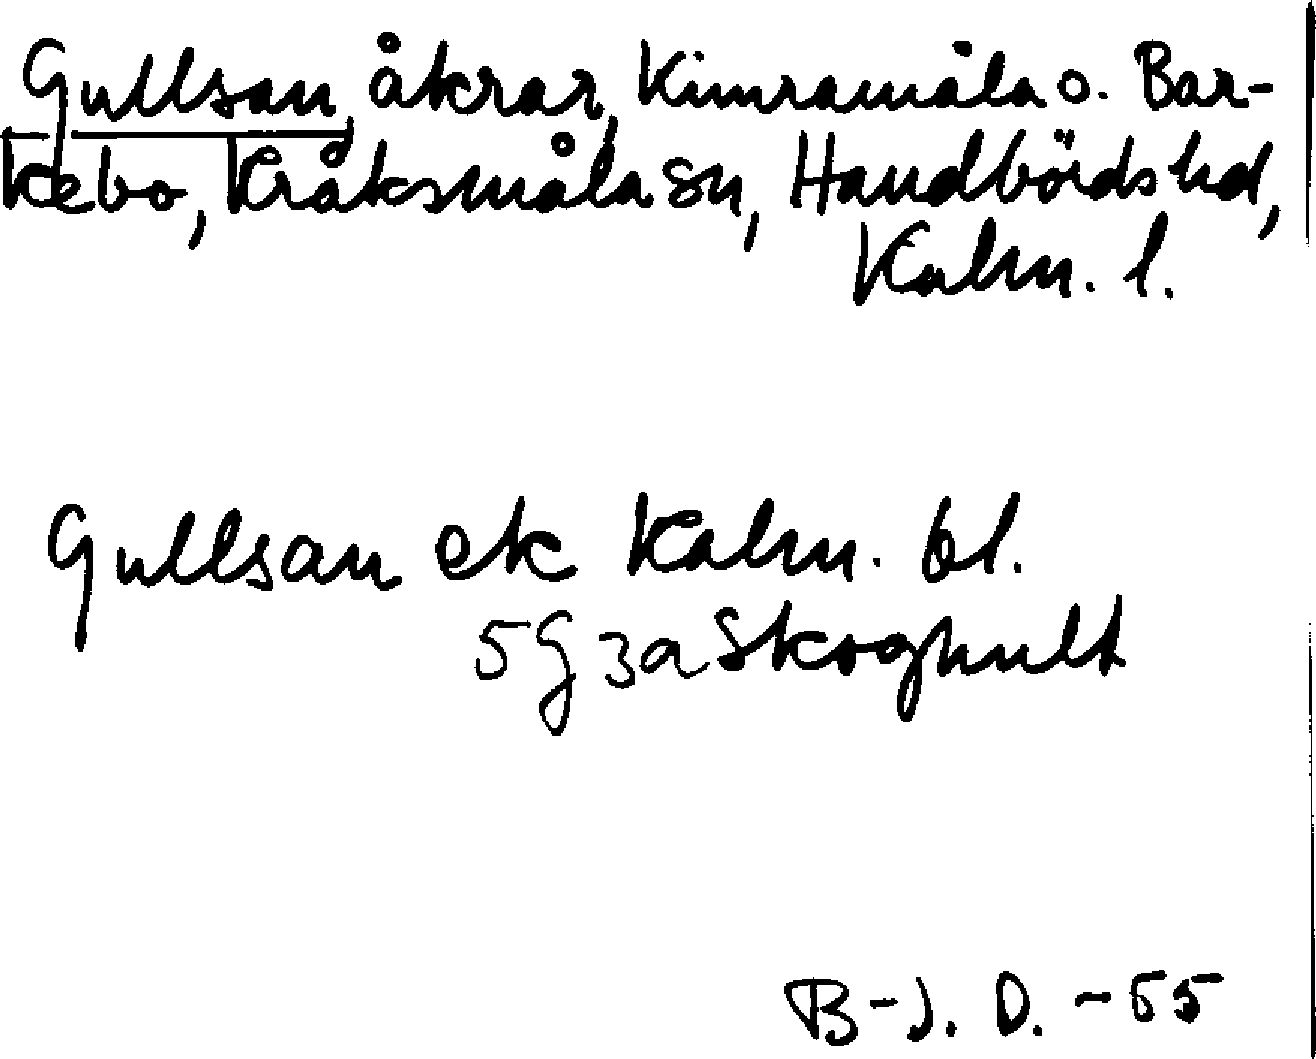 Gullsan, åkrar, Kimramåla o. Bar-
kebo, Kråksmåla sn, Handbörds hd,
Kalm. l.
Gullsan ek Kalm. bl.
5 G 3a Skoghult
B-J. D. -55